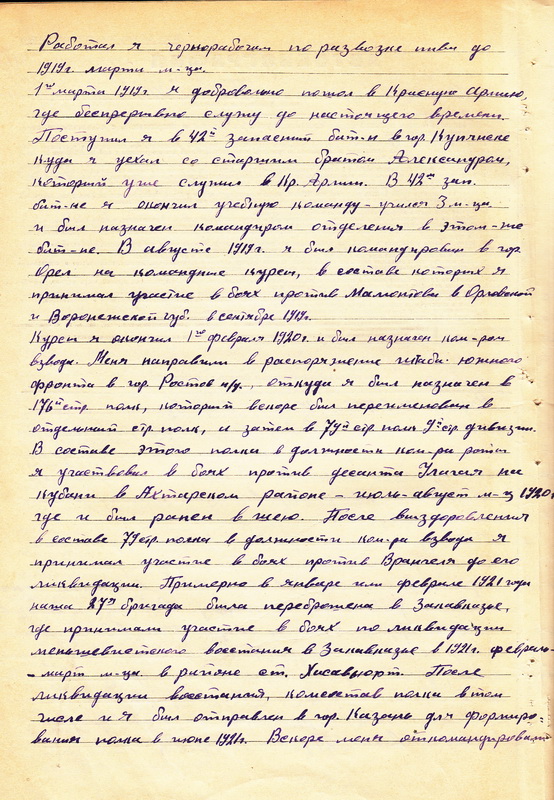 Работал я чернорабочим по развозке пива до
1919г. марта м-ца.
1го марта 1919г я добровольно пошел в Красную Армию,
где беспрерывно служу до настоящего времени.
Поступил я в 42й запасный бат-н в гор. Купянске
куда я уехал со старшим братом Александром,
который уже служил в Кр. Армии. В 42м зап.
бат-не я окончил учебную команду - учился 3 м-ца
и был назначен командиром отделения в этом-же
бат-не. В августе 1919г. я был командирован в гор.
Орел на командные курсы, в составе которых я
принимал участие в боях против Мамонтова в Орловской
и Воронежской губ. в сентябре 1919г.
Курсы я окончил 1го февраля 1920г. и был назначен ком-ром
взвода. Меня направили в распоряжение штаба южного
фронта в гор. Ростов н/Д., откуда я был назначен в
176й стр. полк, который вскоре был переименован в
отдельный стр. полк, а затем в 79й стр. полк 9й стр. дивизии.
В составе этого полка в должности ком-ра роты
я участвовал в боях против десанта Улагая на
Кубани в Ахтарском районе - июль-август м-ц 1920г
где и был ранен в шею. После выздоровления
в составе 79 стр. полка в должности ком-ра взвода я
принимал участие в боях против Врангеля до его
ликвидации. Примерно в январе или феврале 1921 года
наша 27я бригада была переброшена в Закавказье,
где принимали участие в боях по ликвидации
меньшевистского восстания в Закавказье в 1921г. феврале-
- март м-ца. в районе ст. Хасавюрт. После
ликвидации восстания, комсостав полка в том
числе и я был отправлен в гор. Казань для формиро-
вания полка в июне 1921г. Вскоре меня откомандировали